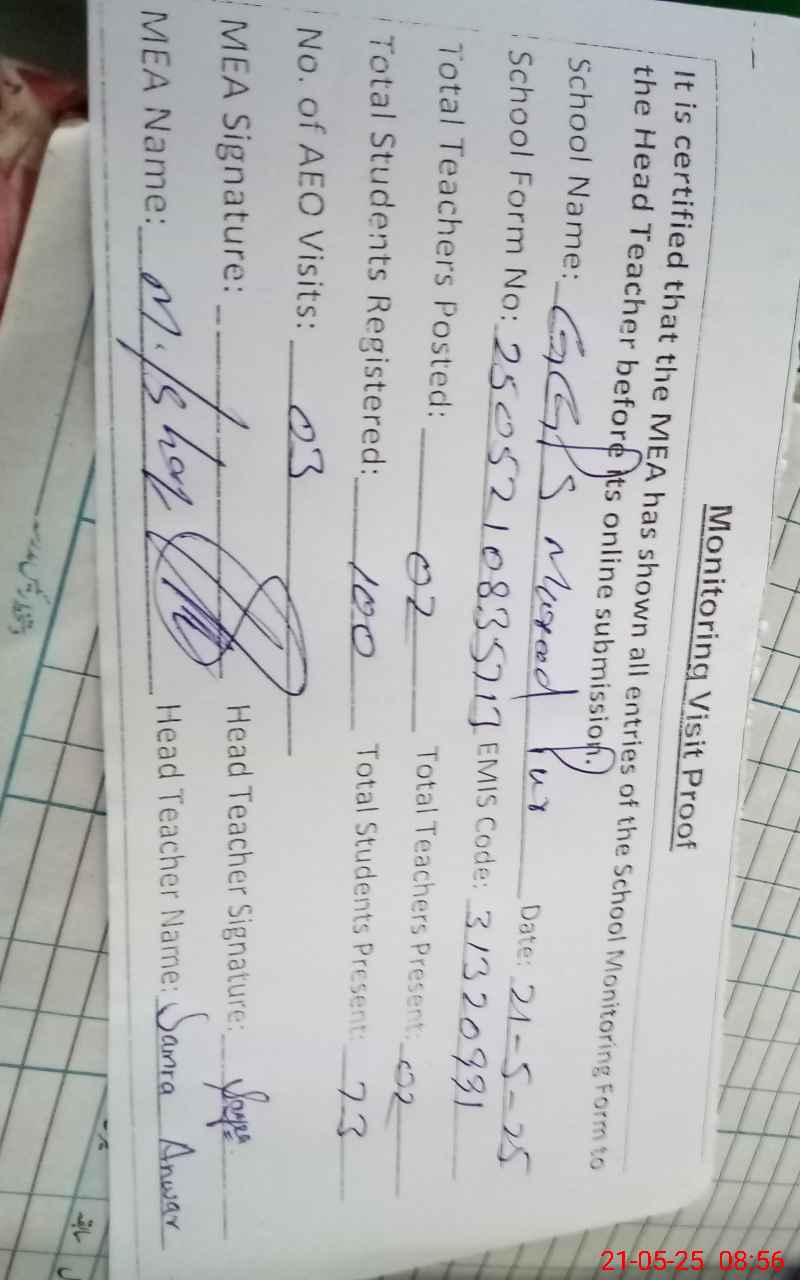 Monitoring Visit Proof
It is certified that the MEA has shown all entries of the School Monitoring Form to
the Head Teacher before its online submission.
School Name: GGPS Murad Pur Date: 21-5-25
School Form No: EMIS Code: 31320991
Total Teachers Posted: 02 Total Teachers Present: 02
Total Students Registered: 100 Total Students Present: 73
No. of AEO Visits: 03
MEA Signature: Head Teacher Signature:
MEA Name: M. Head Teacher Name: Samra Anwar
21-05-25 08:56